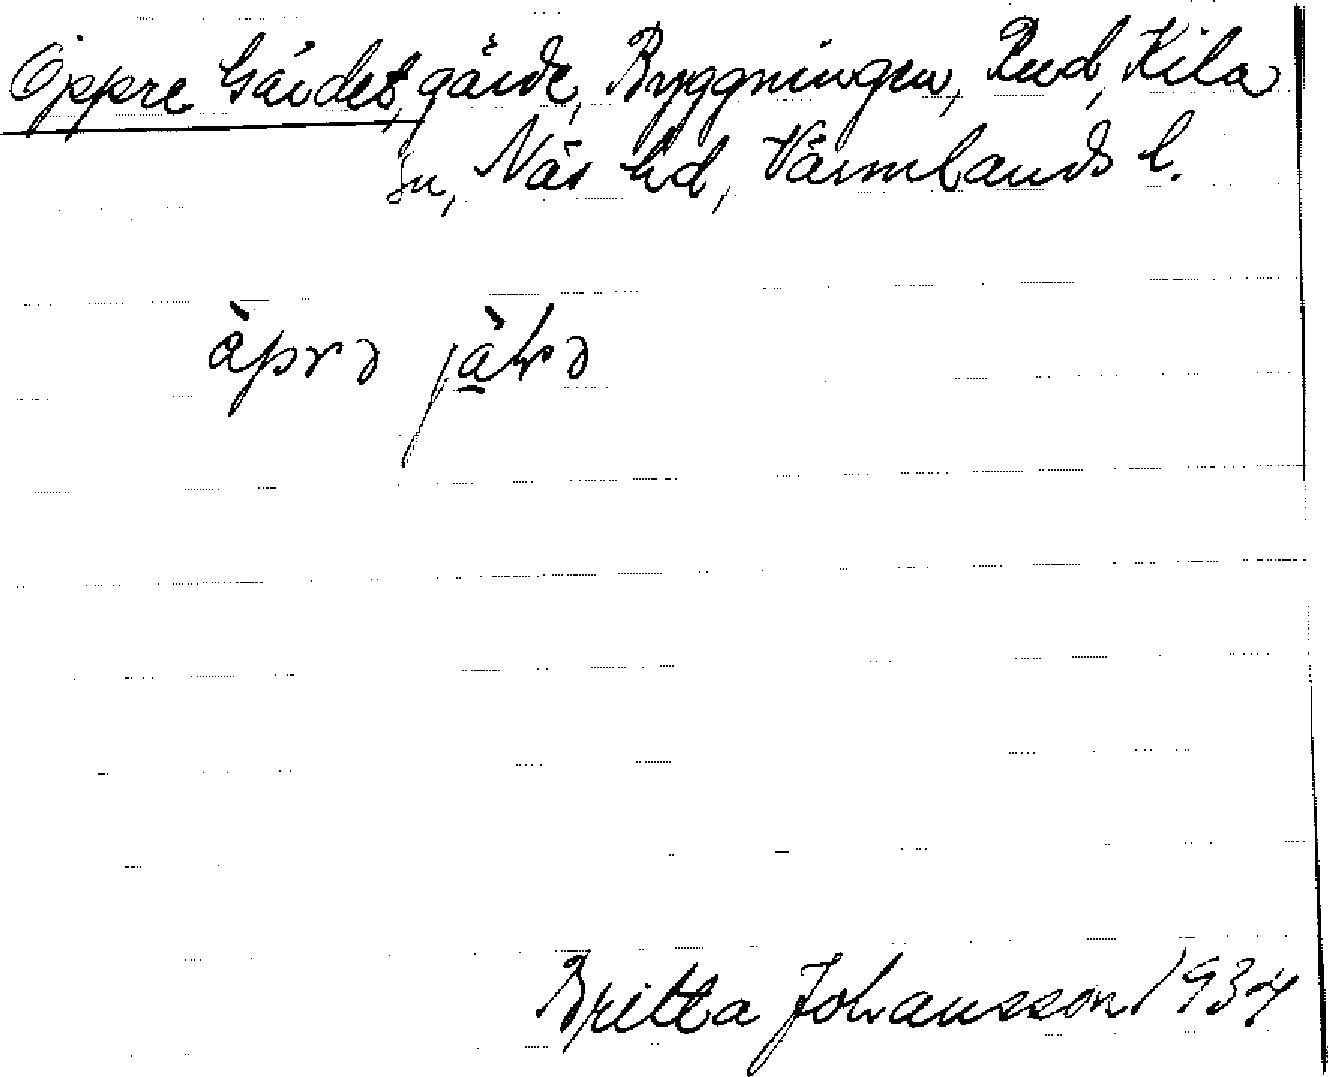 Öppre Gärdet, gärde, Byggningen, Rud, Kila
sn, Näs hd, Värmlands l.
Britta Johansson 1934